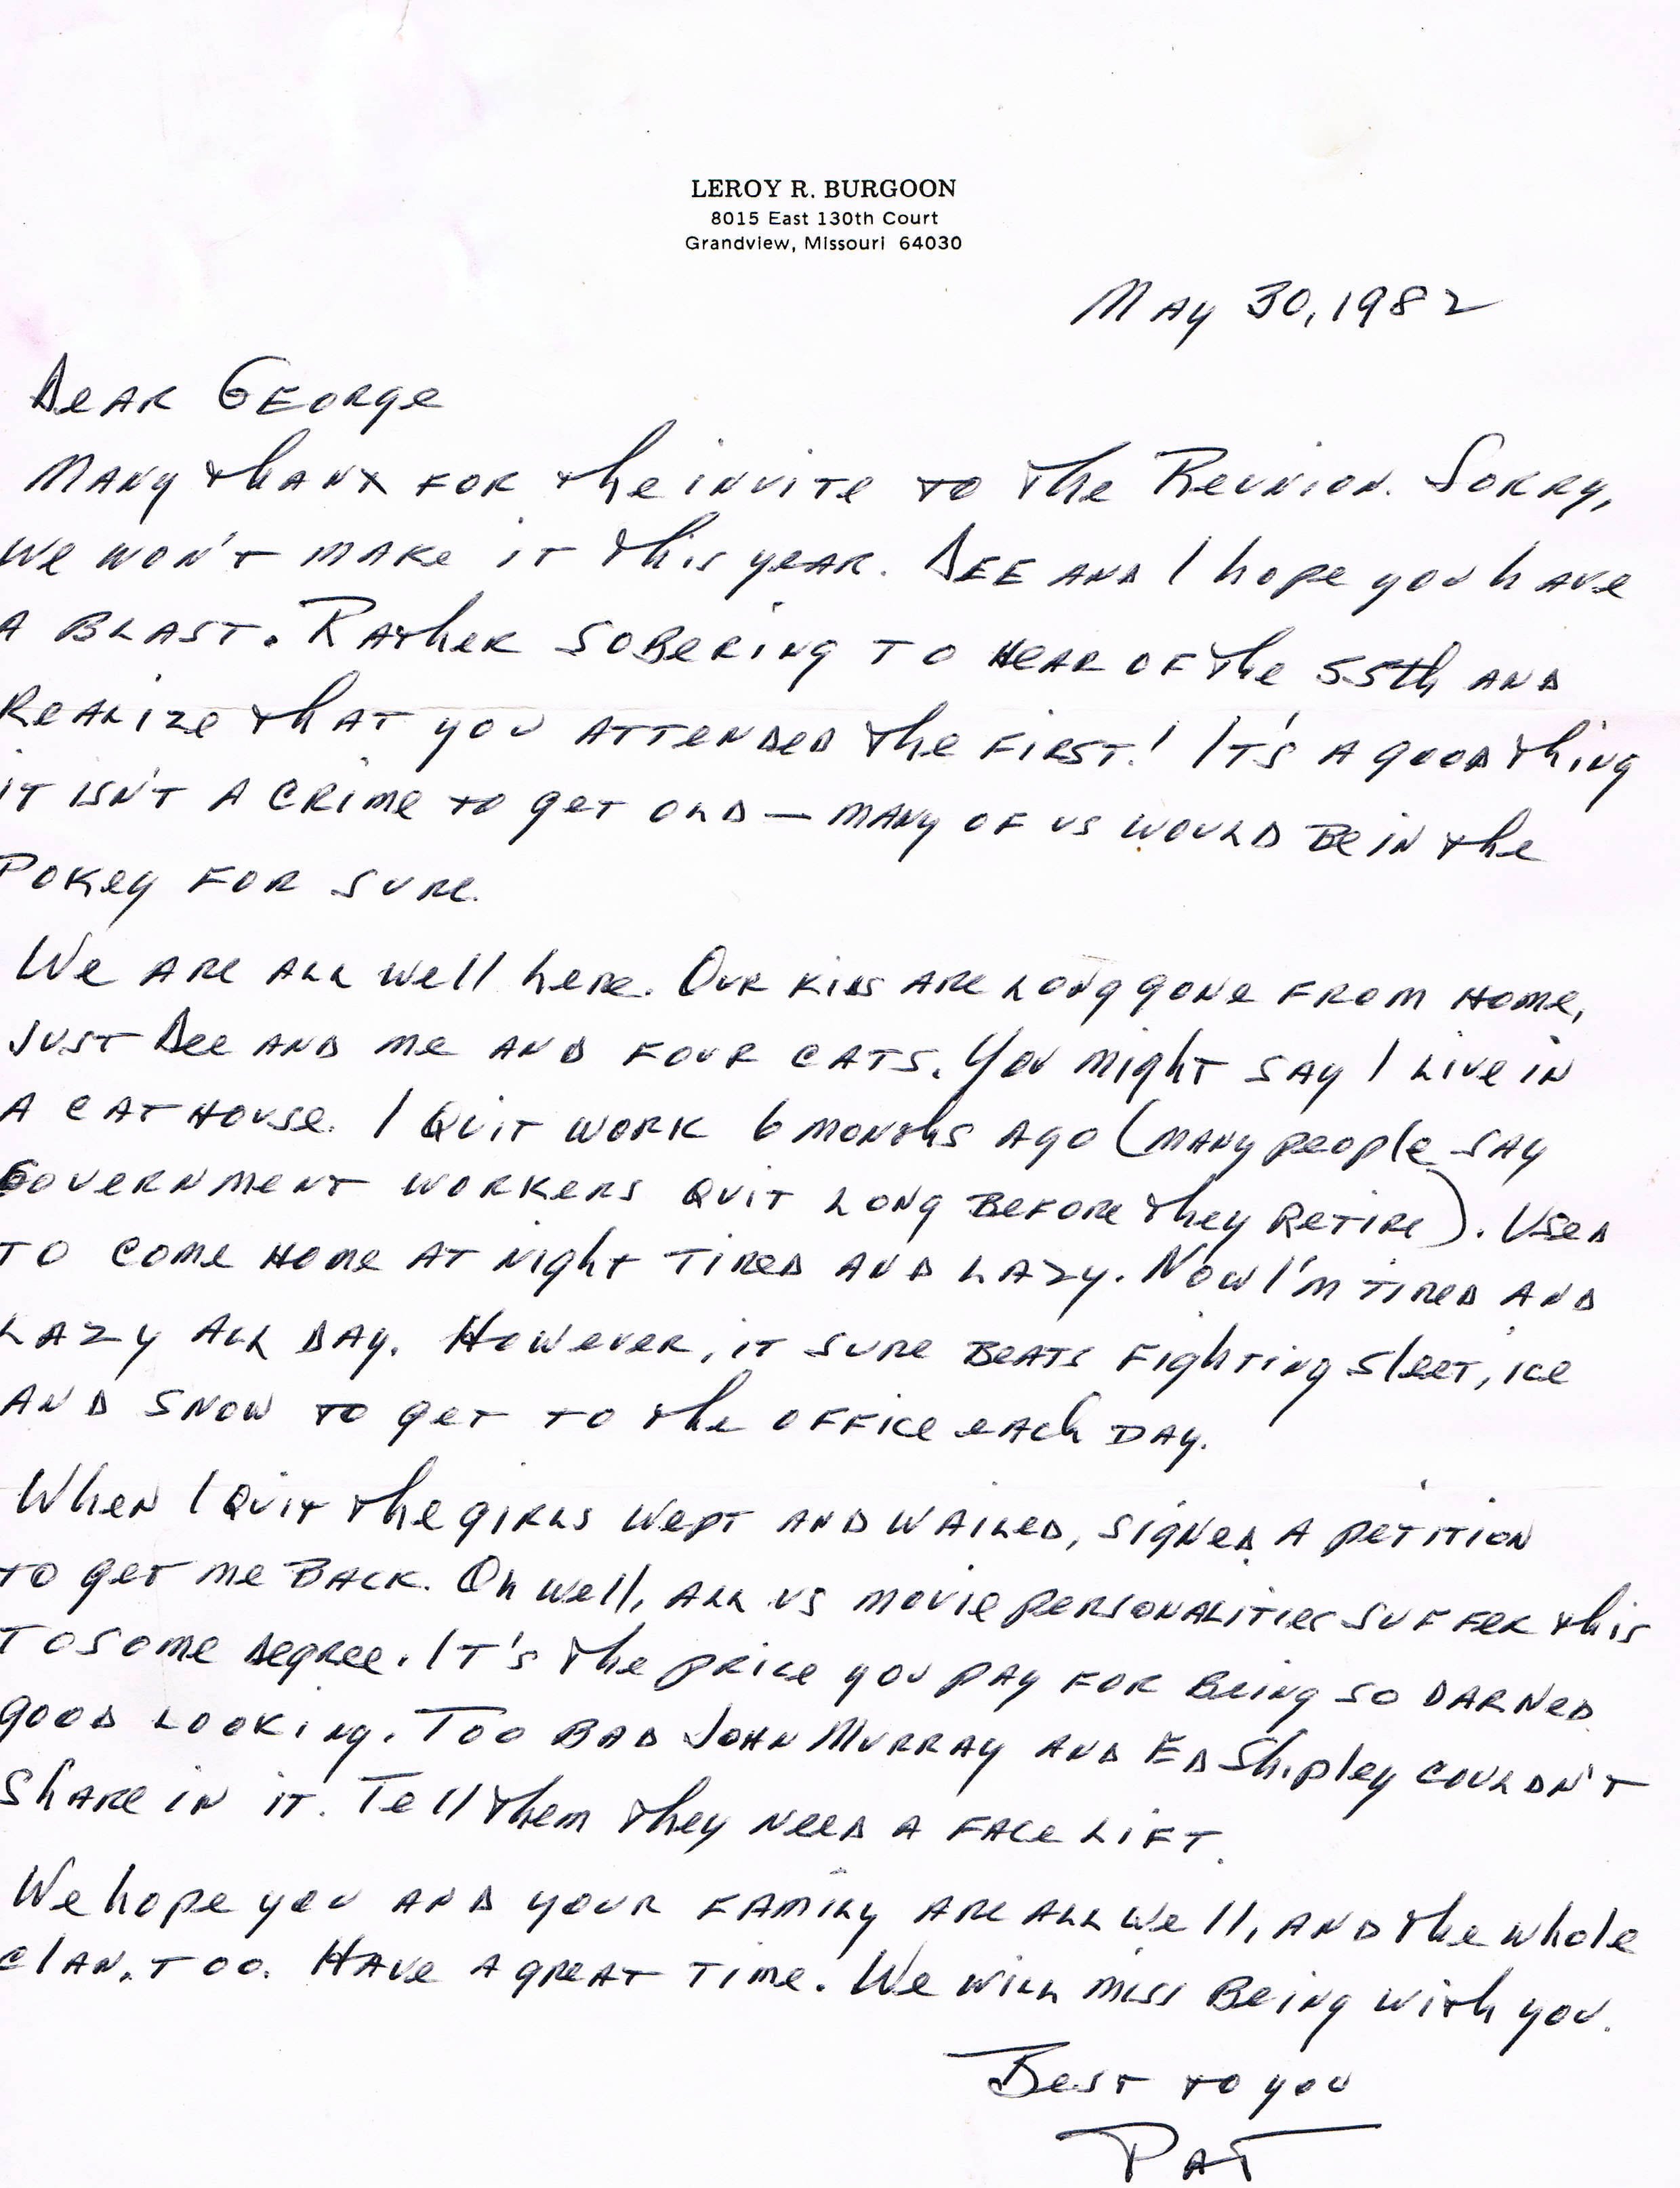 LEROY R. BURGOON
8015 East 130th Court
Grandview, Missouri 64030
May 30, 1982
Dear George
Many thanx for the invite to the Reunion. Sorry,
we won't make it this year. Dee and I hope you have
a blast. Rather sobering to hear of the 55th and
realize that you attended the first! It's a good thing
it isn't a crime to get old — many of us would be in the
Pokey for sure.
We are all well here. Our kids are long gone from home,
just Dee and me and four cats. You might say I live in
a cat house. I quit work 6 months ago (many people say
Government workers quit long before they retire). Used
to come home at night tired and lazy. Now I'm tired and
lazy all day. However, it sure beats fighting sleet, ice
and snow to get to the office each day.
When I quit the girls wept and wailed, signed a petition
to get me back. Oh well, all us movie personalities suffer this
to some degree. It's the price you pay for being so darned
good looking. Too bad John Murray and Ed Shipley couldn't
share in it. Tell them they need a face lift.
We hope you and your family are all well, and the whole
clan, too. Have a great time. We will miss being with you.
Best to you
Pat